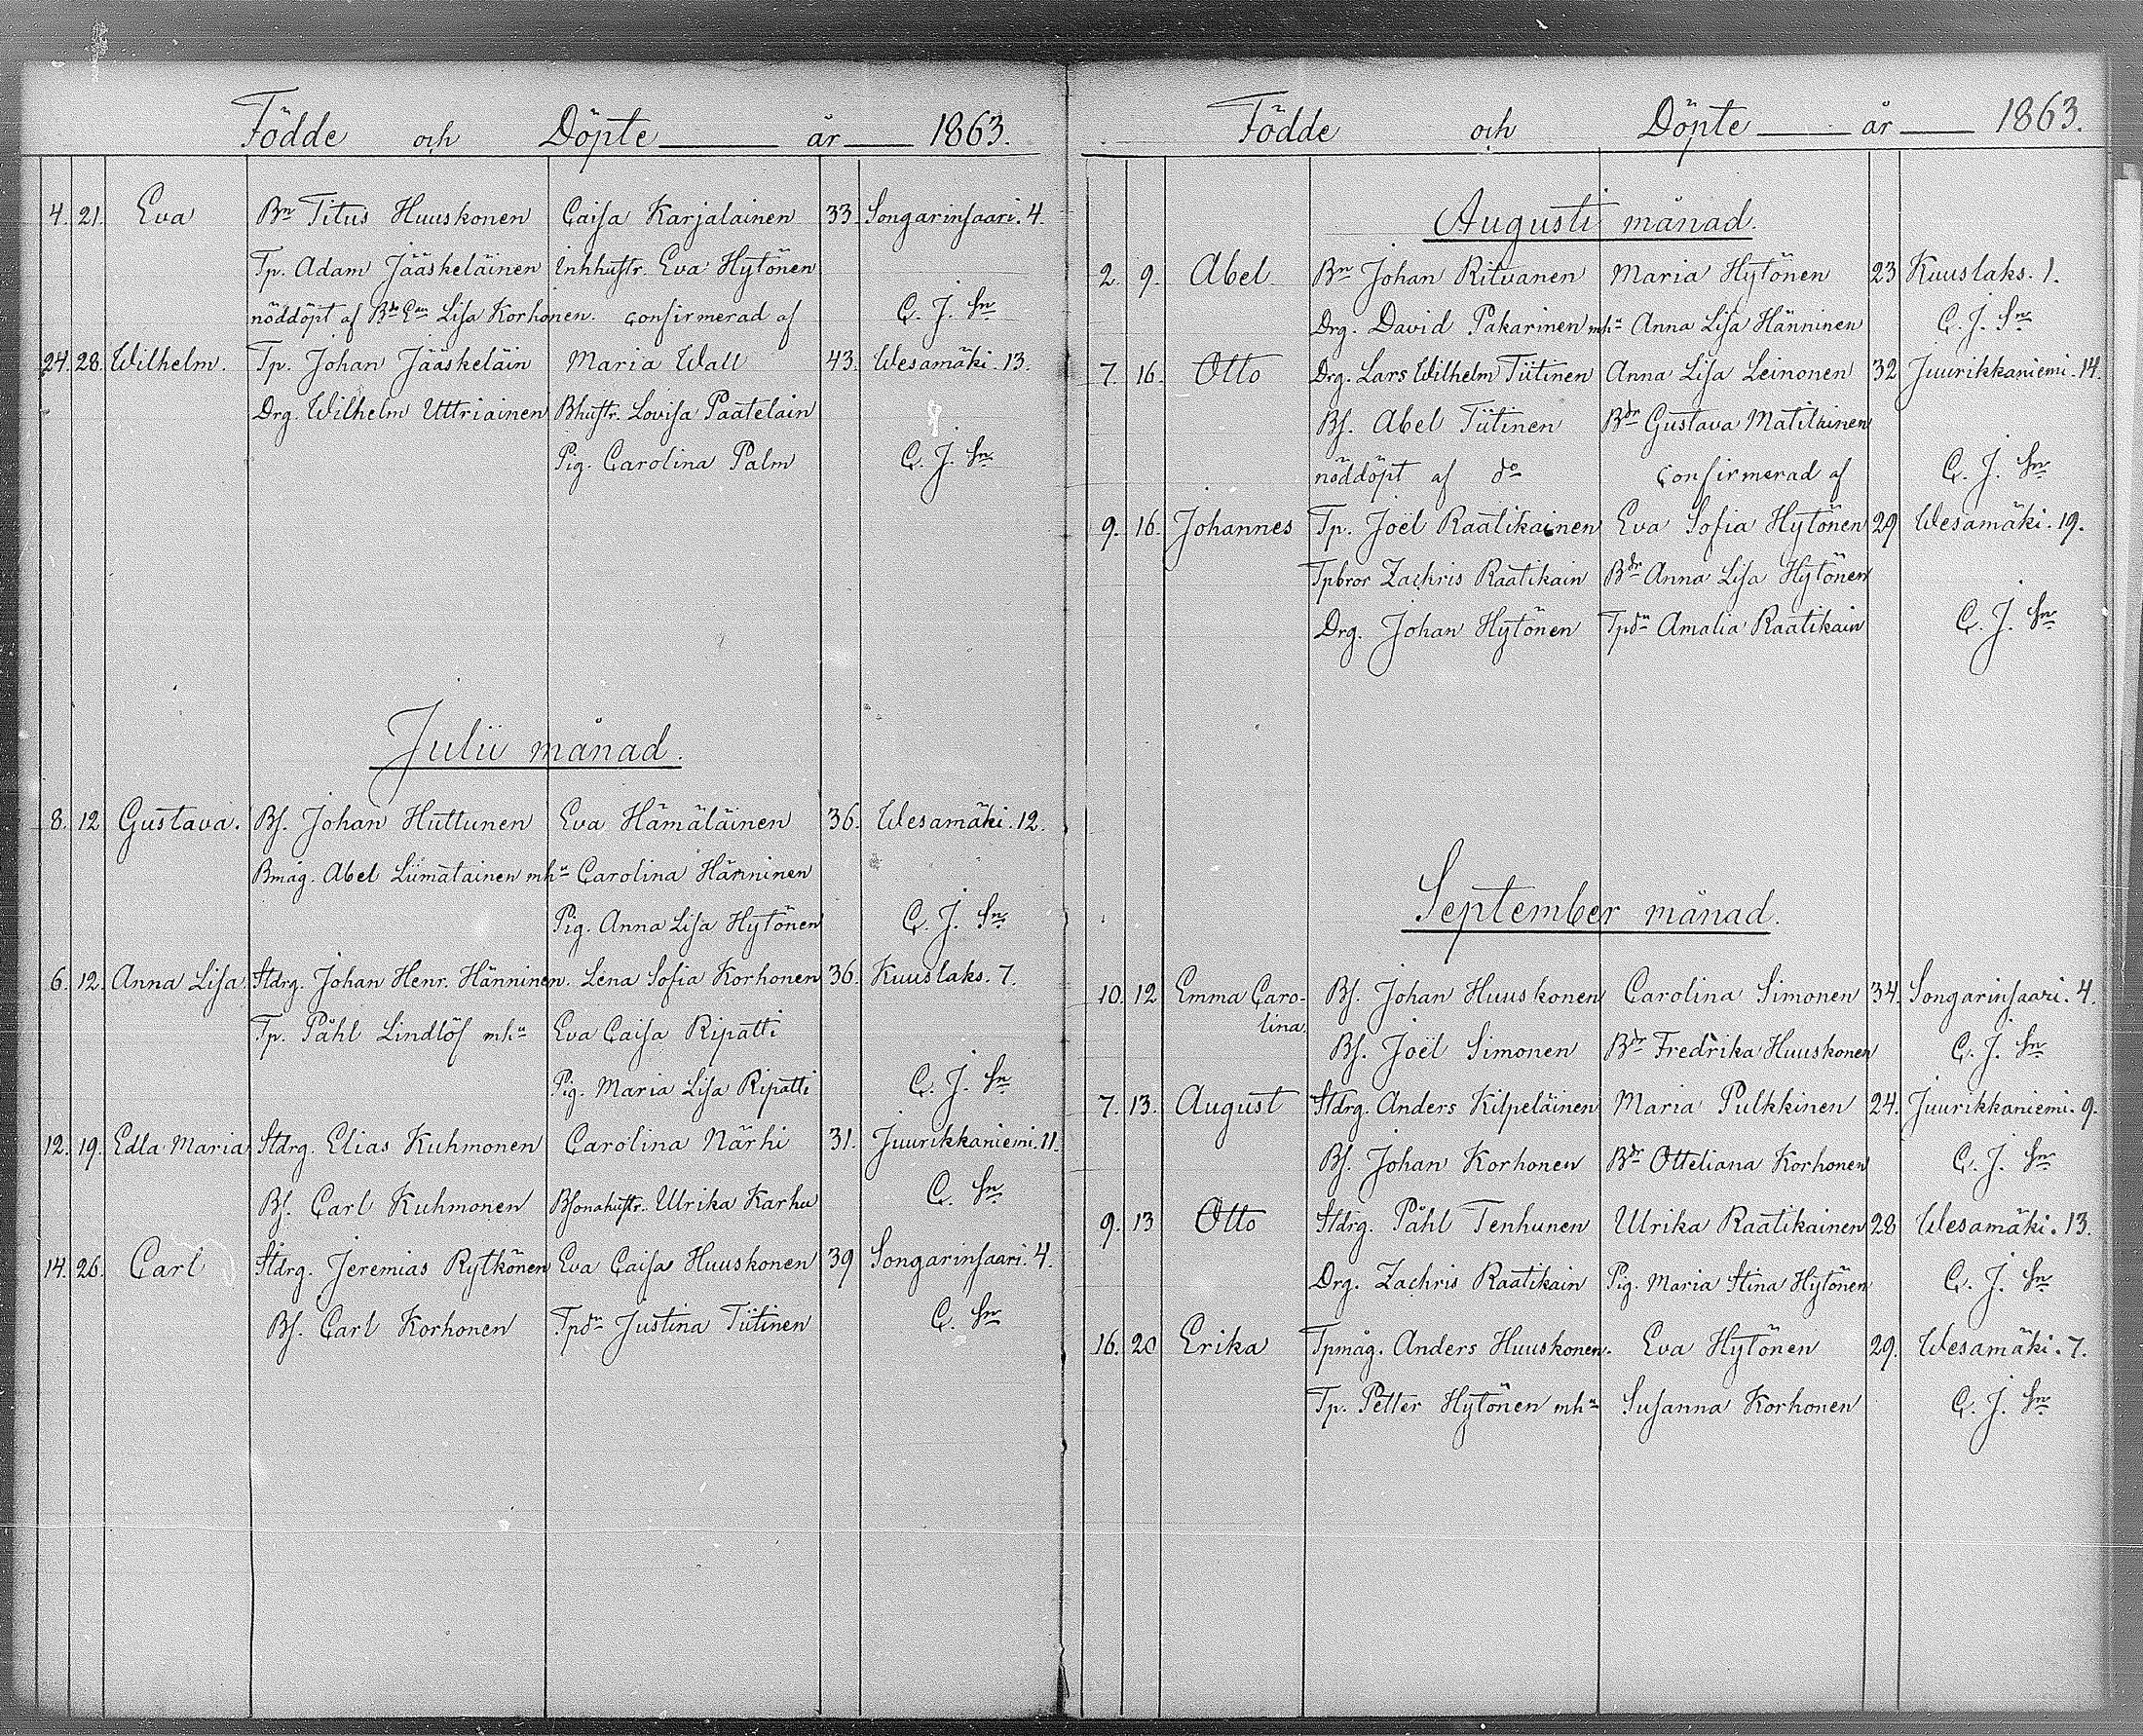 Födde och Döpte år 1863.
4. 21. Eva Bn Titus Huuskonen Caisa Karjalainen 33. Songarinsaari. 4.
Tp. Adam Jääskeläinen Inhhustr. Eva Hytönen
nöddöpt af Lisa Korhonen. confirmerad af C. J. Sn
24. 28. Wilhelm. Tp. Johan Jääskeläin Maria Wall 43. Wesamäki. 13.
Drg. Wilhelm Uttriainen Bhustr. Lovisa Paatelain
Pig. Carolina Palm C. J. Sn
Julii månad.
8. 12 Gustava. Bs. Johan Huttunen Eva Hämäläinen 36. Wesamäki. 12.
Bmåg. Abel Liimatainen mhu Carolina Hänninen
Pig. Anna Lisa Hytönen C. J. Sn
6. 12. Anna Lisa Stdrg. Johan Henr. Hänninen. Lena Sofia Korhonen 36. Kuuslaks. 7.
Tp. Påhl Lindlöf mhu Eva Caisa Ripatti
Pig. Maria Lisa Ripatti C. J. Sn
12. 19. Edla Maria Stdrg. Elias Kuhmonen Carolina Närhi 31. Juurikkaniemi. 11.
Bs. Carl Kuhmonen Bsonahustr. Ulrika Karhu C. Sn
14. 26. Carl Stdrg. Jeremias Rytkönen Eva Caisa Huuskonen 39 Songarinsaari. 4.
Bs. Carl Korhonen Tpdr Justina Tiitinen C. Sn
Födde och Döpte år 1863.
Augusti månad.
2. 9. Abel Bn Johan Ritvanen Maria Hytönen 23 Kuuslaks. 1.
Drg. David Pakarinen mhu Anna Lisa Hänninen C. J. Sn
7. 16. Otto Drg. Lars Wilhelm Tiitinen Anna Lisa Leinonen 32 Juurikkaniemi. 14.
Bs. Abel Tiitinen Bdr Gustava Matilainen
nöddöpt af do confirmerad af C. J. Sn
9. 16. Johannes Tp. Joël Raatikainen Eva Sofia Hytönen 29 Wesamäki. 19.
Tpbror Zachris Raatikain Bdr Anna Lisa Hytönen
Drg. Johan Hytönen Tpdr Amalia Raatikain C. J. Sn
September månad.
10. 12 Emma Caro- Bs. Johan Huuskonen Carolina Simonen 34. Songarinsaari. 4.
lina. Bs. Joël Simonen Bdr Fredrika Huuskonen C. J. Sn
7. 13. August Stdrg. Anders Kilpeläinen Maria Pulkkinen 24. Juurikkaniemi. 9.
Bs. Johan Korhonen Bdr Otteliana Korhonen C. J. Sn
9. 13 Otto Stdrg. Påhl Tenhunen Ulrika Raatikainen 28 Wesamäki. 13.
Drg. Zachris Raatikain Pig. Maria Stina Hytönen C. J. Sn
16. 20 Erika Tpmåg. Anders Huuskonen. Eva Hytönen 29. Wesamäki. 7.
Tp. Petter Hytönen mhu Susanna Korhonen C. J. Sn